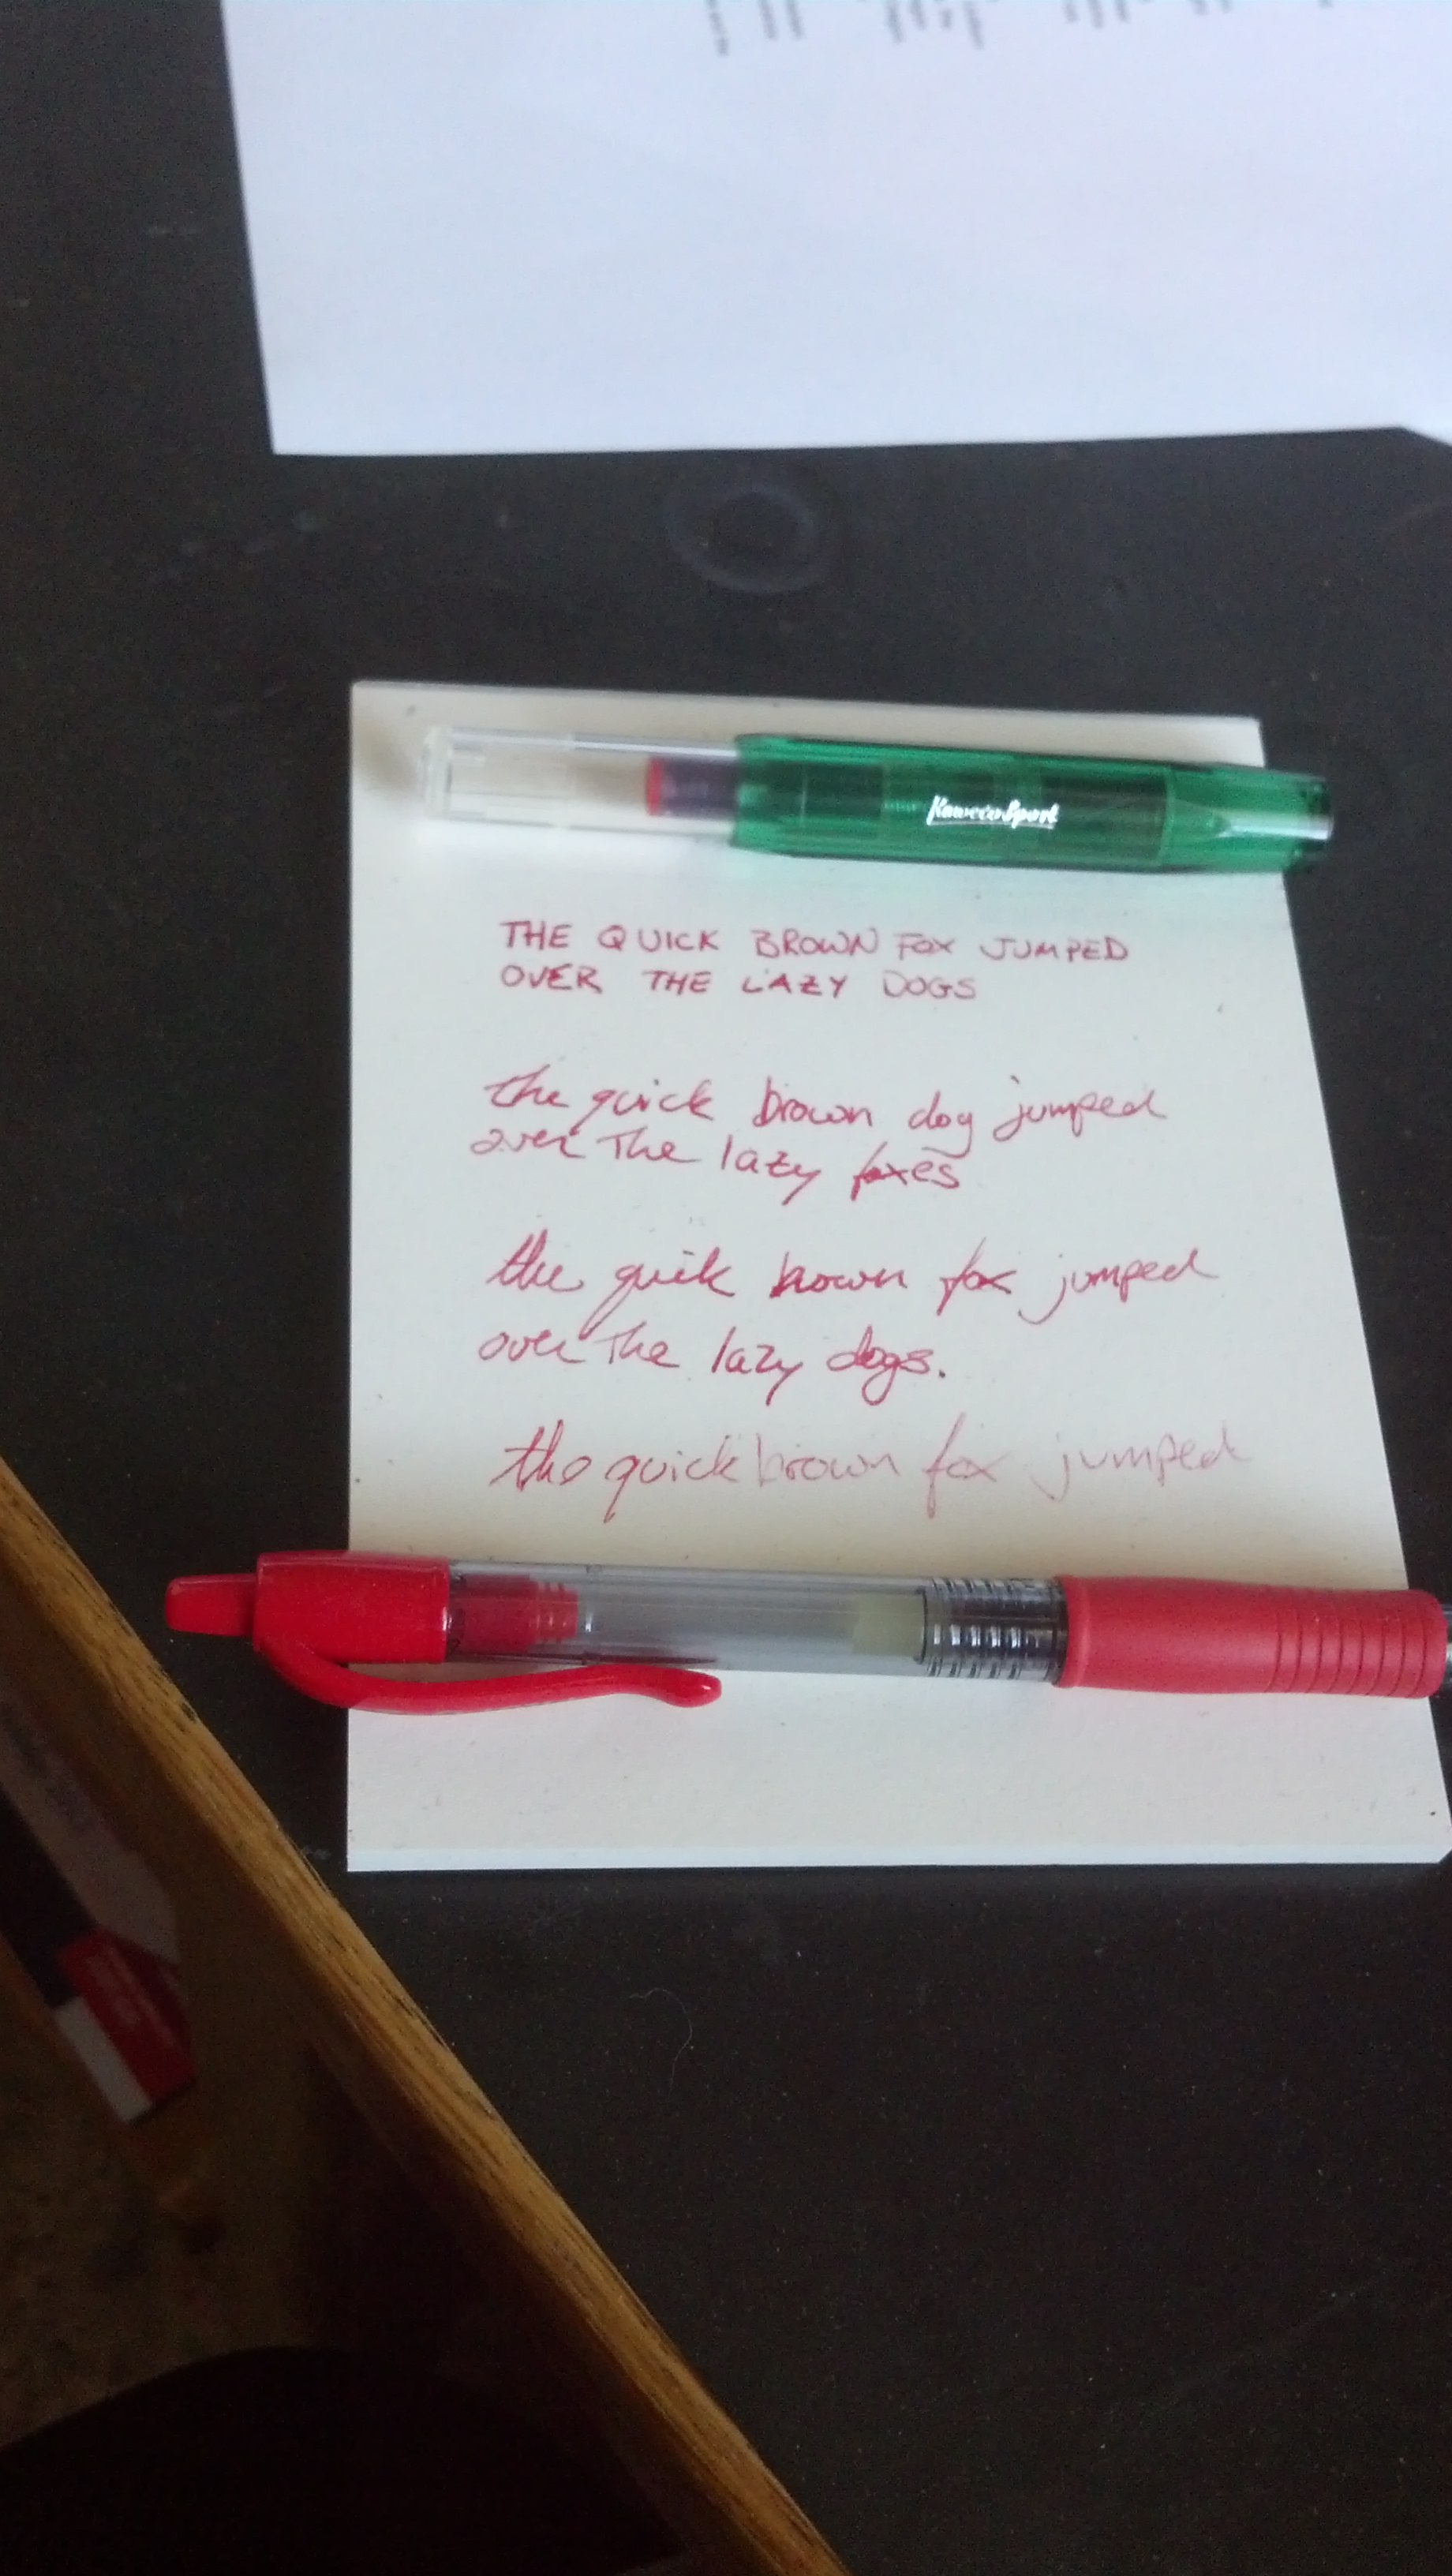 Kaweco Sport
THE QUICK BROWN FOX JUMPED
OVER THE LAZY DOGS
the quick brown dog jumped
over the lazy foxes
the quik brown fox jumped
over the lazy dogs.
the quick brown fox jumped